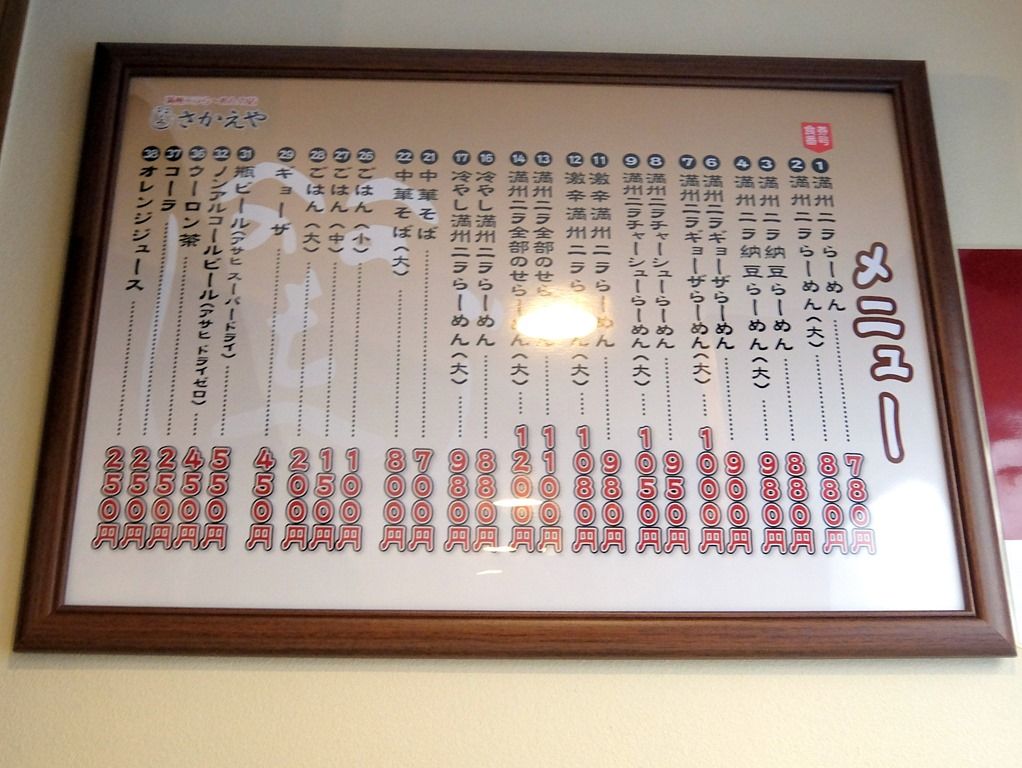 メニュー
食券番号
1 満州ニラらーめん 780円
2 満州ニラらーめん(大) 880円
3 満州ニラ納豆らーめん 880円
4 満州ニラ納豆らーめん(大) 980円
6 満州ニラギョーザらーめん 900円
7 満州ニラギョーザらーめん(大) 1000円
8 満州ニラチャーシューらーめん 950円
9 満州ニラチャーシューらーめん(大) 1050円
11 激辛満州ニラらーめん 980円
12 激辛満州ニラらーめん(大) 1080円
13 満州ニラ全部のせらーめん 1100円
14 満州ニラ全部のせらーめん(大) 1200円
16 冷やし満州ニラらーめん 880円
17 冷やし満州ニラらーめん(大) 980円
21 中華そば 700円
22 中華そば(大) 800円
26 ごはん(小) 100円
27 ごはん(中) 150円
28 ごはん(大) 200円
29 ギョーザ 450円
31 瓶ビール(アサヒ スーパードライ) 550円
32 ノンアルコールビール(アサヒ ドライゼロ) 450円
36 ウーロン茶 250円
37 コーラ 250円
38 オレンジジュース 250円
さかえや